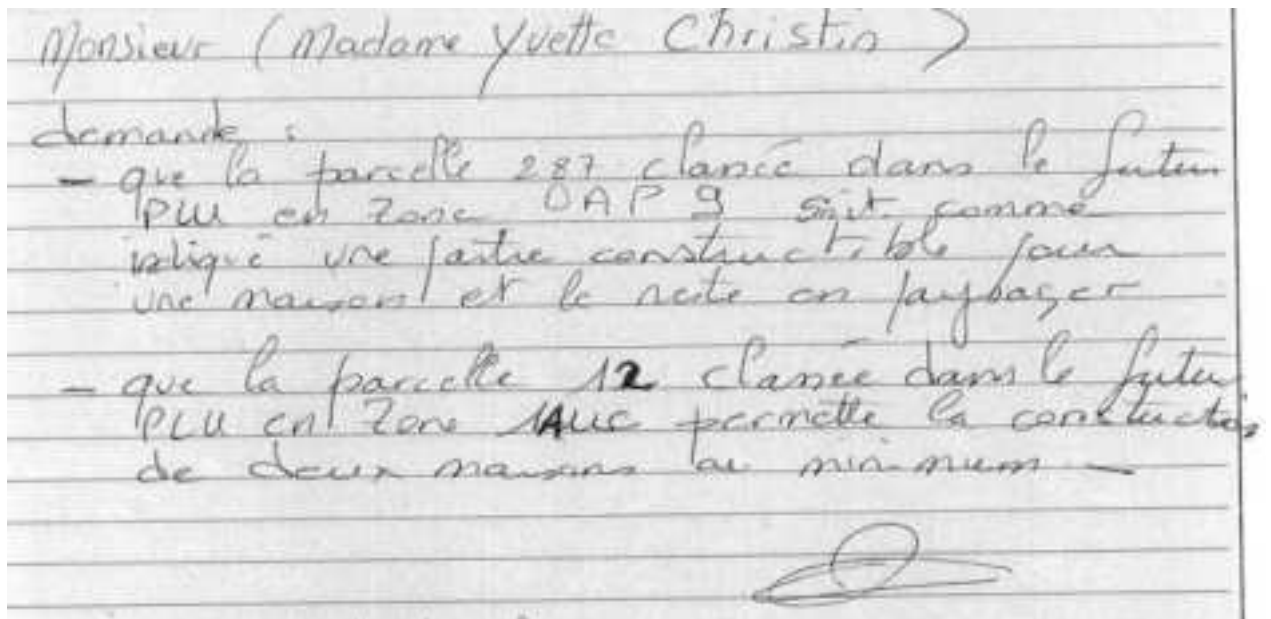 Monsieur (Madame Yvette Christin)
demande :
- que la parcelle 287 classée dans le futur
PLU en zone OAP 9 soit comme
indiqué une partie constructible pour
une maison et le reste en paysager
- que la parcelle 12 classée dans le futur
PLU en zone 1AUc permette la construction
de deux maisons au minimum -